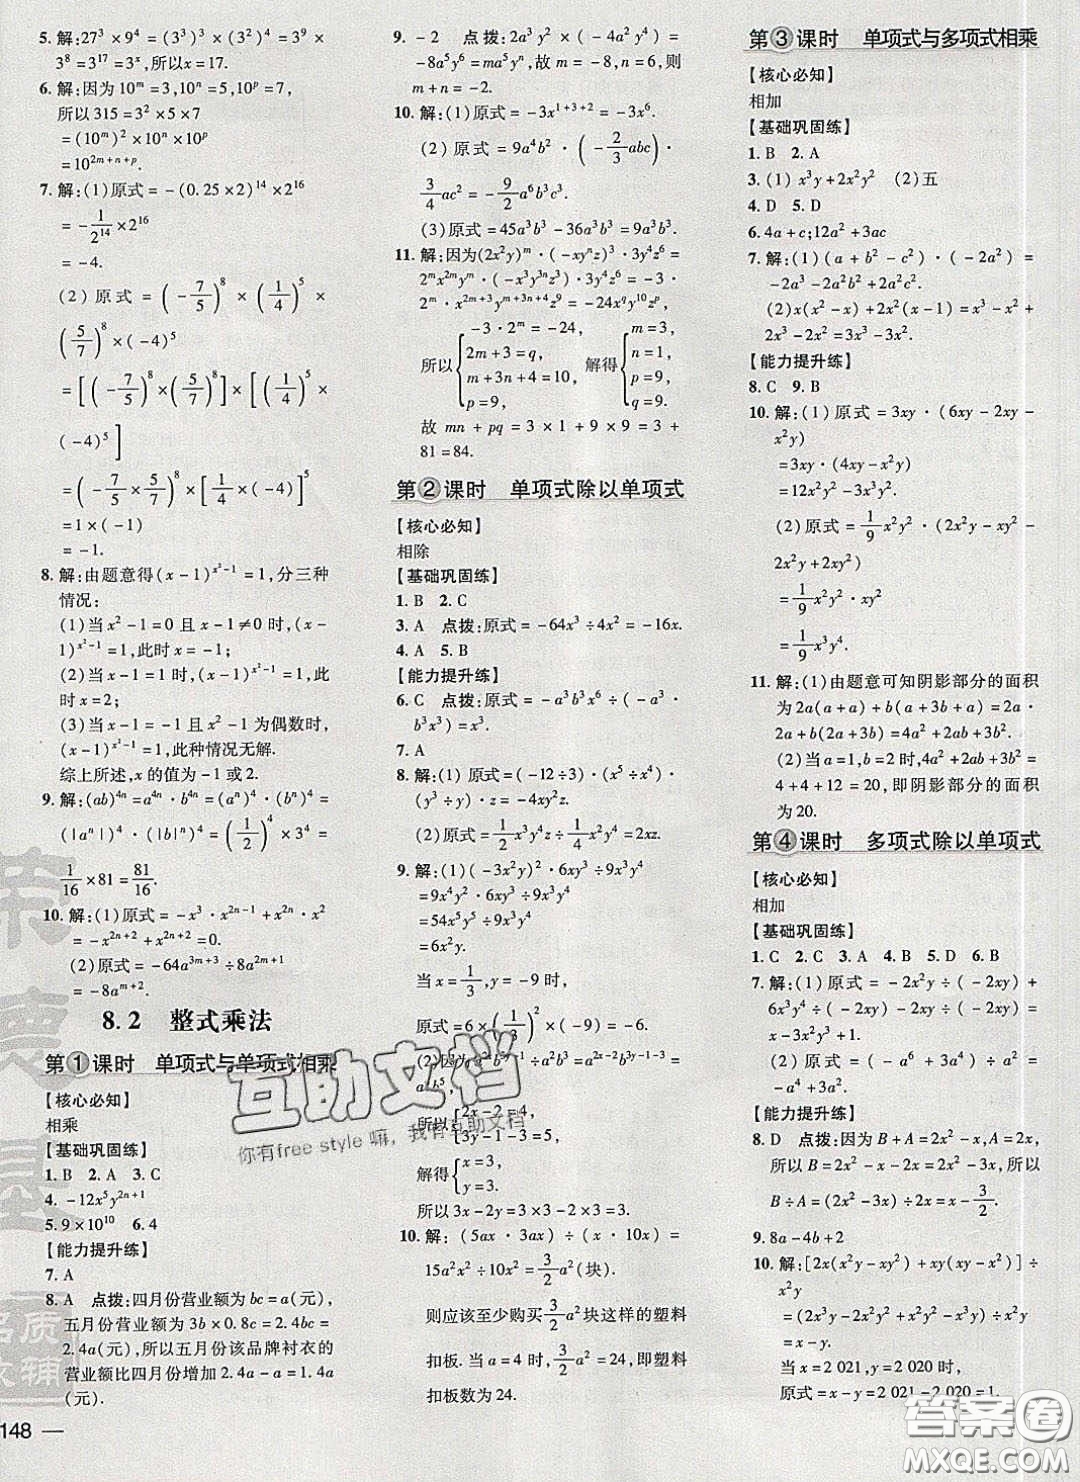 5. 解:27³×9⁴=(3³)³×(3²)⁴=3⁹×
3⁸=3¹⁷=3ˣ,所以x=17.
6. 解:因为10ᵐ=3,10ⁿ=5,10ᵖ=7,
所以315=3²×5×7
=(10ᵐ)²×10ⁿ×10ᵖ
=10²ᵐ⁺ⁿ⁺ᵖ.
7. 解:(1)原式=-(0.25×2)¹⁴×2¹⁶
=-1/2¹⁴×2¹⁶
=-4.
(2)原式=(-7/5)⁸×(1/4)⁵×
(5/7)⁸×(-4)⁵
=[(-7/5)⁸×(5/7)⁸]×[(1/4)⁵×
(-4)⁵]
=(-7/5×5/7)⁸×[1/4×(-4)]⁵
=1×(-1)
=-1.
8. 解:由题意得(x-1)^(x²-1)=1,分三种
情况:
(1)当x²-1=0且x-1≠0时,(x-
1)^(x²-1)=1,此时x=-1;
(2)当x-1=1时,(x-1)^(x²-1)=1,此
时x=2;
(3)当x-1=-1且x²-1为偶数时,
(x-1)^(x²-1)=1,此种情况无解.
综上所述,x的值为-1或2.
9. 解:(ab)⁴ⁿ=a⁴ⁿ·b⁴ⁿ=(aⁿ)⁴·(bⁿ)⁴=
(|aⁿ|)⁴·(|b|ⁿ)⁴=(1/2)⁴×3⁴=
1/16×81=81/16.
10. 解:(1)原式=-x³·x²ⁿ⁻¹+x²ⁿ·x²
=-x²ⁿ⁺²+x²ⁿ⁺²=0.
(2)原式=-64a³ᵐ⁺³÷8a²ᵐ⁺²
=-8aᵐ⁺¹.
8.2 整式乘法
第①课时 单项式与单项式相乘
【核心必知】
相乘
【基础巩固练】
1. B 2. A 3. C
4. -12x⁵y²ⁿ⁺²
5. 9×10¹⁰ 6. 4
【能力提升练】
7. A
8. A 点拨:四月份营业额为bc=a(元),
五月份营业额为3b×0.8c=2.4bc=
2.4a(元),所以五月份该品牌衬衣的
营业额比四月份增加2.4a-a=1.4a
(元).
148 —
9. -2 点拨:5a³y²×(-a²y⁴)=
-8a⁵y⁶=ma⁵yⁿ,故m=-8,n=6,则
m+n=-2.
10. 解:(1)原式=-3x¹⁺³⁺²=-3x⁶.
(2)原式=9a⁴b²·(-2/3abc)·
3/4ac²=-9/2a⁶b³c³.
(3)原式=45a³b³-36a³b³=9a³b³.
11. 解:因为(2x²y)ᵐ·(-xyⁿz)³·3y⁴z⁶=
2ᵐx²ᵐyᵐ·(-x³y³ⁿz³)·3y⁴z⁶=-3×
2ᵐ·x²ᵐ⁺³yᵐ⁺³ⁿ⁺⁴z⁹=-24x^q y¹⁰zᵖ,
所以{-3·2ᵐ=-24, 2m+3=q, m+3n+4=10, p=9, 解得{m=3, n=1, p=9, q=9,
故mn+pq=3×1+9×9=3+
81=84.
第②课时 单项式除以单项式
【核心必知】
相除
【基础巩固练】
1. B 2. C
3. A 点拨:原式=-64x³÷4x²=-16x.
4. A 5. B
【能力提升练】
6. C 点拨:原式=-a³b³x⁶÷(-a³·
b³x³)=x³.
7. A
8. 解:(1)原式=(-12÷3)·(x⁵÷x⁴)·
(y³÷y)·z=-4xy²z.
(2)原式=3/2xyz÷3/4y=2xz.
9. 解:(1)(-3x²y³)²·6xy²÷9x⁴y⁷
=9x⁴y⁶·6xy²÷9x⁴y⁷
=54x⁵y⁸÷9x⁴y⁷
=6x²y.
当x=1/3,y=-9时,
原式=6×(1/3)²×(-9)=-6.
所以{2x-2=4, 3y-1-3=5,
解得{x=3, y=3,
所以3x-2y=3×3-2×3=3.
10. 解:(5ax·3ax)÷(x·10x)=
15a²x²÷10x²=3/2a²(块).
则应该至少购买3/2a²块这样的塑料
扣板.当a=4时,3/2a²=24,即塑料
扣板数为24.
第③课时 单项式与多项式相乘
【核心必知】
相加
【基础巩固练】
1. B 2. A
3. (1)x³y+2x²y² (2)五
4. D 5. D
6. 4a+c;12a²+3ac
7. 解:(1)(a+b²-c²)·(-2a²)=
-2a³-2a²b²+2a²c².
(2)x(x²-x)+2x²(x-1)=x³-x²+
2x³-2x²=3x³-3x².
【能力提升练】
8. C 9. B
10. 解:(1)原式=3xy·(6xy-2xy-
x²y)
=3xy·(4xy-x²y)
=12x²y²-3x³y².
(2)原式=1/9x²y²·(2x²y-xy-2x²y
+xy+x²y)
=1/9x²y²·x²y
=1/9x⁴y³.
11. 解:(1)由题意可知阴影部分的面积
为2a(a+a)+b(a+3b+a)=2a·
2a+b(2a+3b)=4a²+2ab+3b².
(2)当a=1,b=2时,4a²+2ab+3b²=
4+4+12=20,即阴影部分的面积
为20.
第④课时 多项式除以单项式
【核心必知】
相加
【基础巩固练】
1. C 2. C 3. A 4. A 5. D 6. B
7. 解:(1)原式=-2x²y÷(-2xy)+
6x³y⁴÷(-2xy)+(-2xy)÷(-2xy)=
x-3x²y³+1.
(2)原式=(-a⁶+3a⁴)÷a²=
-a⁴+3a².
【能力提升练】
8. D 点拨:因为B+A=2x²-x,A=2x,
所以B=2x²-x-2x=2x²-3x,所以
B÷A=(2x²-3x)÷(2x)=x-3/2.
9. 8a-4b+2
10. 解:[2x(x²y-xy²)+xy(xy-x²)]÷
x²y
=(2x³y-2x²y²+x²y²-x³y)÷x²y
=x-y.
当x=2 021,y=2 020时,
原式=x-y=2 021-2 020=1.
互助文档
你有free style嘛,我有互助文档
答案圈
MXQE.COM